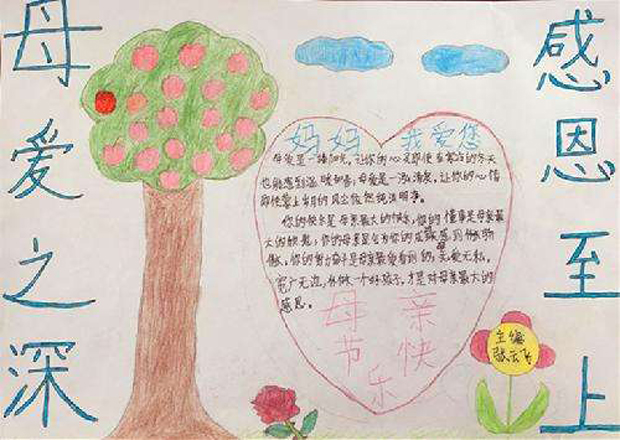 母爱之深
妈妈 我爱您
母爱是一缕阳光,让你的心灵即使在寒冷的冬天
也能感到温暖如春;母爱是一泓清泉,让你的心情
即使蒙上岁月的风尘依然纯洁明净。
你的快乐是母亲最大的快乐,你的懂事是母亲最
大的欣慰,你的母亲是会为你的成绩感到
傲,你的努力奋斗是母亲最爱看到的,关爱无私,
宽广无边,你做一个好孩子,才是对母亲最大的
感恩。
母亲
节快
乐
主编
张云飞
感恩至上